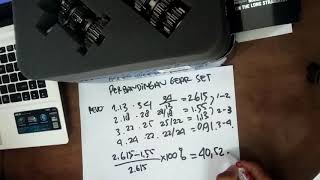 THE LONG STRATEGY
PERBANDINGAN GEAR SET
1. 13 . 34 34/13 = 2.615 1-2
2. 18 . 28 28/18 = 1.55 2-3
3. 22 . 25 25/22 = 1.13
4. 24 . 22 22/24 = 0.91 3-4
2.615-1.55/2.615 x100% = 40,52